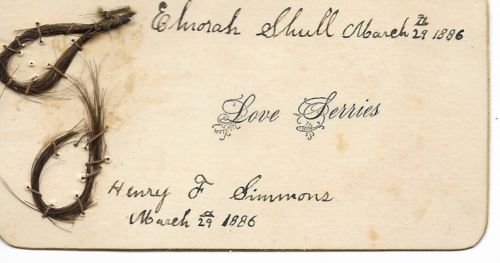 Elnorah Shull March 29th 1886
Love Serries
Henry F Simmons
March 29th 1886